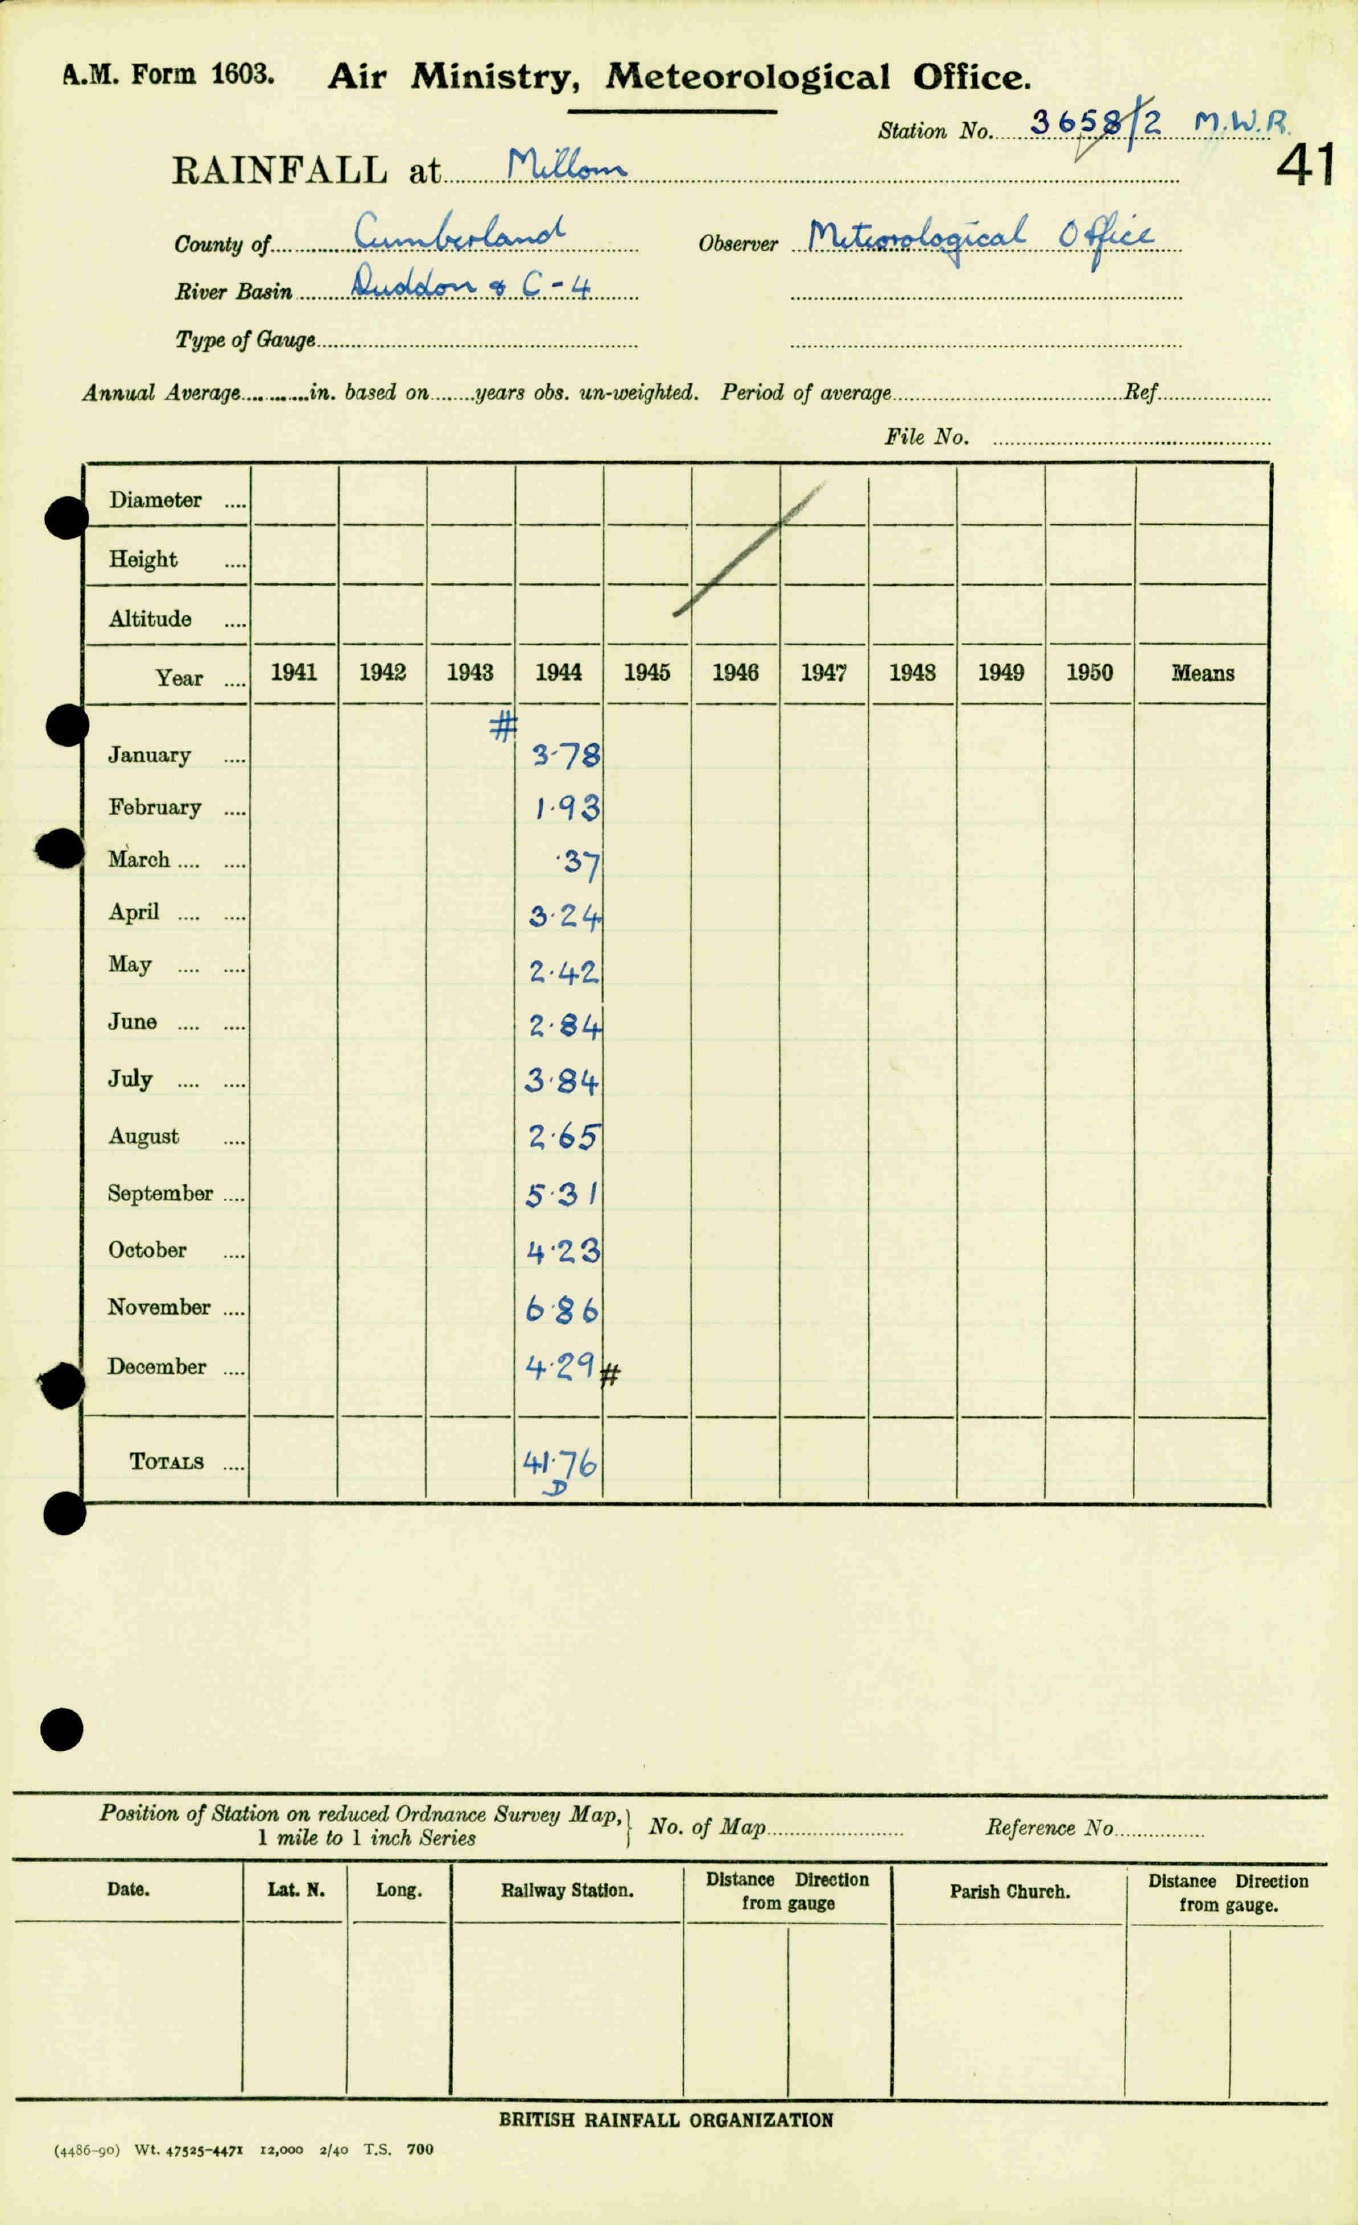 A.M. Form 1603. Air Ministry, Meteorological Office.
Station No. 3658/2 M.W.R.
41
RAINFALL at Millom
County of Cumberland Observer Meteorological Office
River Basin Duddon & C-4
Type of Gauge
Annual Average in. based on years obs. un-weighted. Period of average Ref
File No.
Diameter
Height
Altitude
Year 1941 1942 1943 1944 1945 1946 1947 1948 1949 1950 Means
#
January 3.78
February 1.93
March .37
April 3.24
May 2.42
June 2.84
July 3.84
August 2.65
September 5.31
October 4.23
November 6.86
December 4.29 #
TOTALS 41.76
D
Position of Station on reduced Ordnance Survey Map, } No. of Map Reference No.
1 mile to 1 inch Series
Date. Lat. N. Long. Railway Station. Distance Direction from gauge Parish Church. Distance Direction from gauge.
BRITISH RAINFALL ORGANIZATION
(4486-90) Wt. 47525-4471 12,000 2/40 T.S. 700